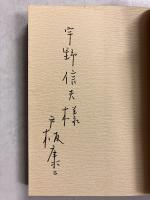 宇野信夫様
戸板康二